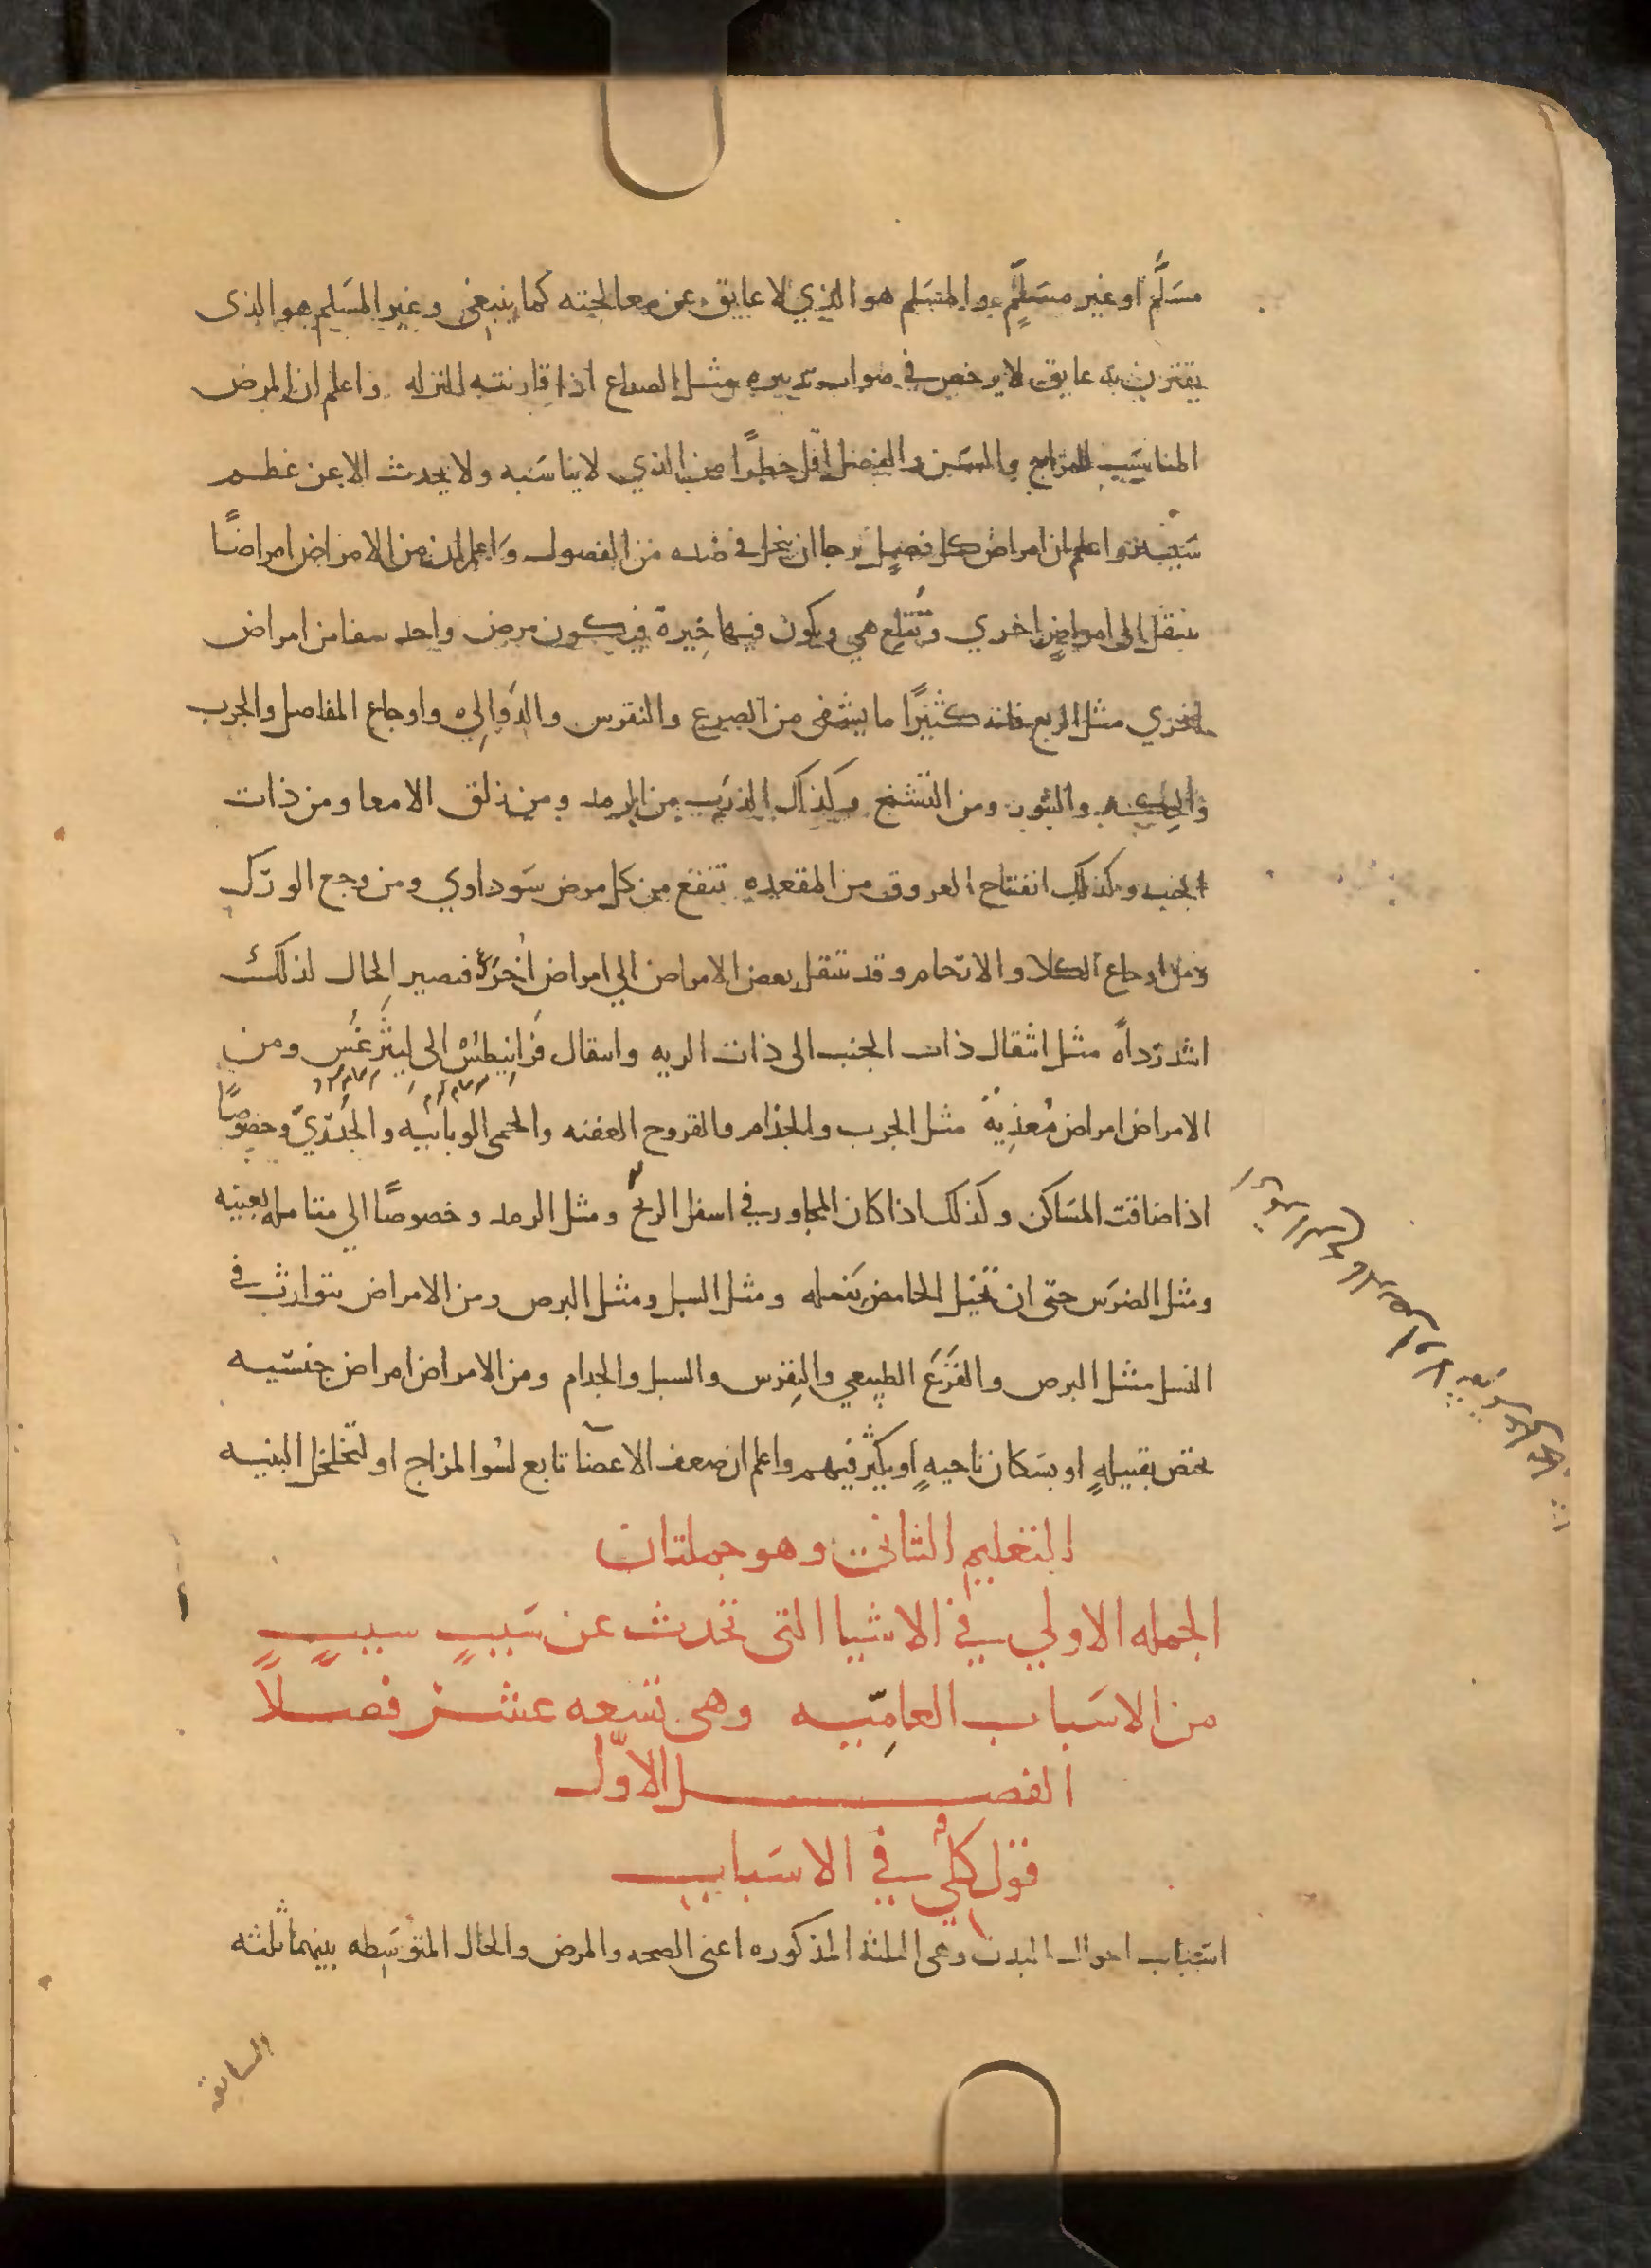 مسَلَّم او غير مسَلَّمٍ والمسَلم هو الذي لا عايق عن معالجته كما ينبغي وغير المسَلم هو الذى
يقترن به عايق لا يرخص في صواب تدبيره مثل الصداع اذا قارنته النزله واعلم ان المرض
المناسَب للمزاج والسن والفصل اقل خطرًا من الذي لا يناسَبه ولا يحدث الا عن عظم
سَببه واعلم ان امراض كل فصلٍ يرجا ان ينحل في ضده من الفصول واعلم ان من الامراض امراضًا
ينتقل الى امراضٍ اخري وتُقلع هي ويكون فيها خيرة فيكون مرض واحد شفا من امراض
اخري مثل الربع فانه كثيرًا ما يشفى من الصرع والنقرس والدَوالِي واوجاع المفاصل والجرب
والحِكه والبثور ومن التشنج وكذلك الذرَب من الرمد ومن زلق الامعا ومن ذات
الجنب وكذلك انفتاح العروق من المقعده تنفع من كل مرض سَوداوي ومن وجع الورك
ومن اوجاع الكلا والارحام وقد تنتقل بعض الامراض الي امراض اُخرَى فيصير الحال لذلك
اشد رداةً مثل انتقال ذات الجنب الى ذات الريه وانتقال فَرانيطس الى ليثرغس ومن
الامراض امراض مُعذِيةٌ مثل الجرب والجذام والقروح العفنه والحمى الوبائيه والجُدَريّ وخصوصًا
اذا ضاقت المسَاكن وكذلك اذا كان المجاور في اسفل الريح ومثل الرمد وخصوصًا الي متامله بعينه
ومثل الضرَس حتى ان تخيل الحامض يَفعله ومثل السل ومثل البرص ومن الامراض يتوارث في
النسل مثل البرص والقَرَع الطبيعي والنِقرس والسل والجدام ومن الامراض امراض جنسَيه
يختص بقبيلهٍ او بسَكان ناحيهٍ او يكثر فيهم واعلم ان ضعف الاعضآ تابع لسُو المزاج او لتخلخل البنيه
التعليم الثاني وهو جملتان
الجمله الاولي في الاشيا التي تحدث عن سَببٍ سببٍ
من الاسَباب العامِّيه وهى تسعه عشر فصلاً
الفصل الاوّل
قول كلي في الاسَباب
اسَباب احوال البدن وهي الثلثة المذكوره اعنى الصحه والمرض والحال المتوَسِطه بينهما ثلثه
السابقه